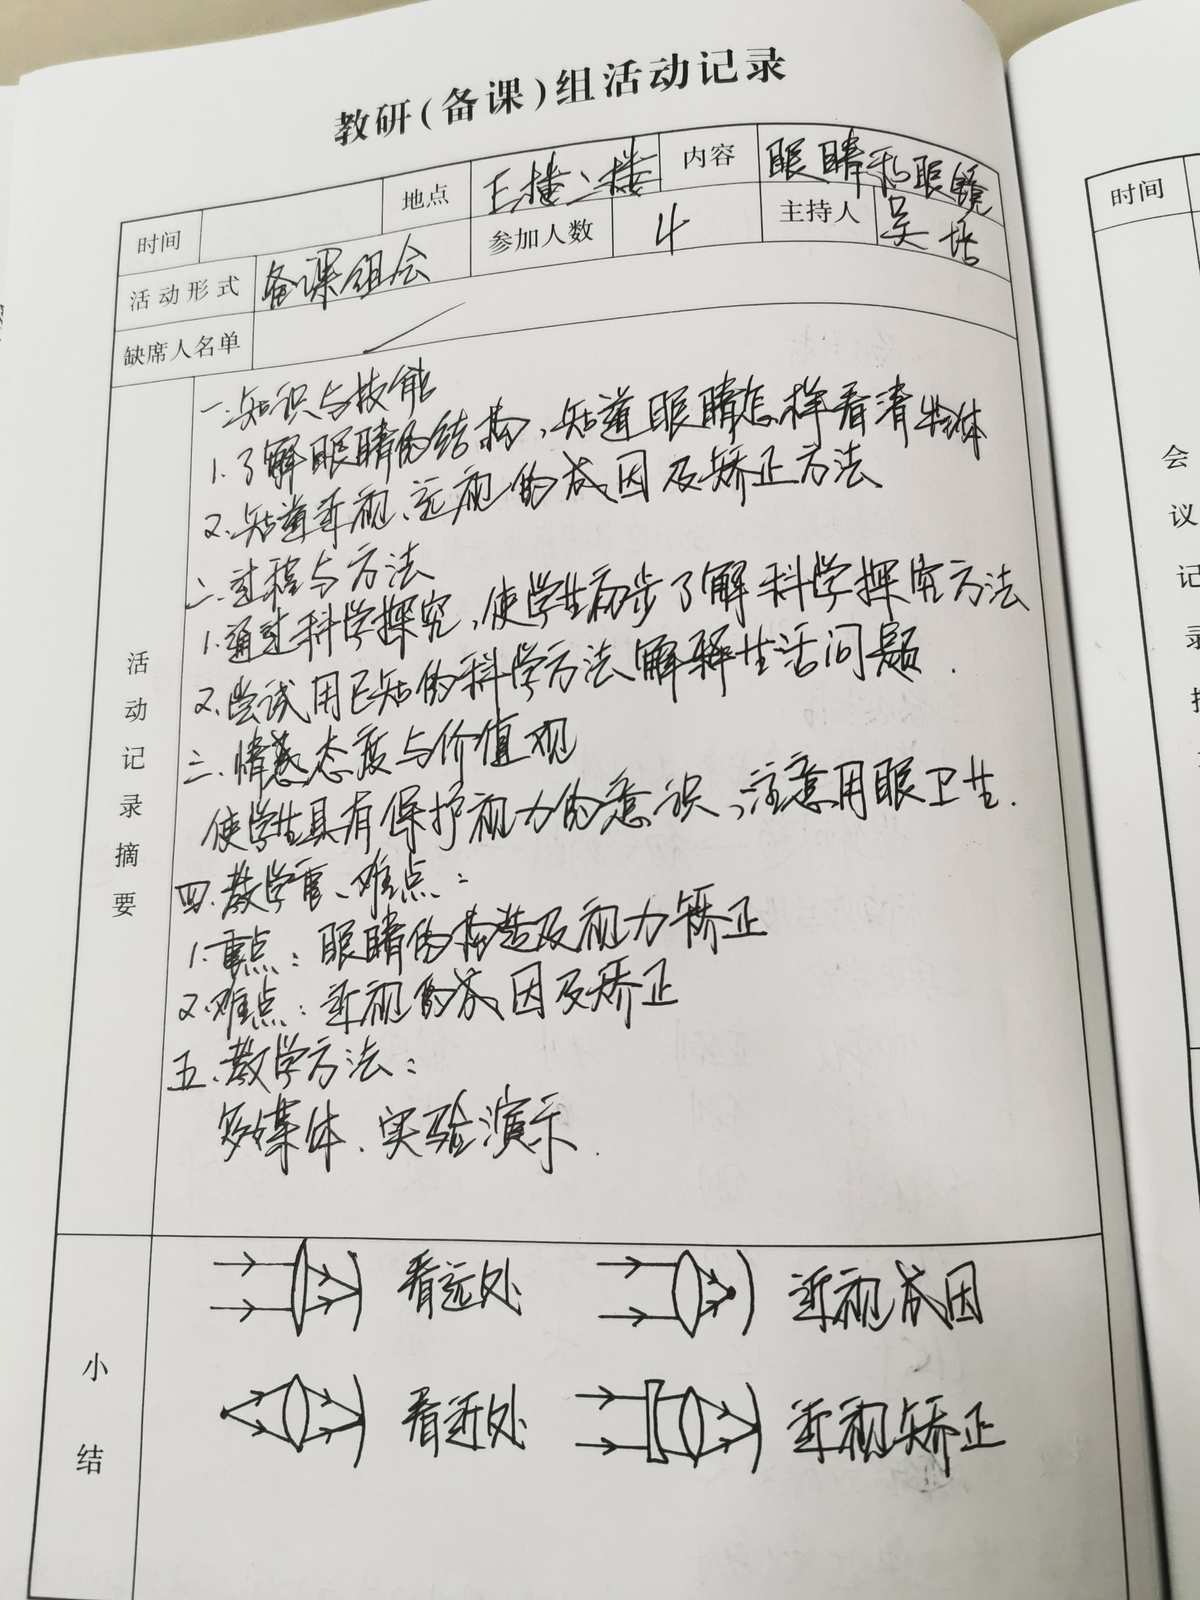 教研（备课）组活动记录
时间 地点 主楼二楼 内容 眼睛和眼镜
活动形式 备课组会 参加人数 4 主持人 吴
缺席人名单
活动记录摘要
一.知识与技能
1.了解眼睛的结构,知道眼睛怎样看清物体
2.知道近视、远视的成因及矫正方法
二.过程与方法
1.通过科学探究,使学生初步了解科学探究方法
2.尝试用已知的科学方法解释生活问题.
三.情感态度与价值观
使学生具有保护视力的意识,注意用眼卫生.
四.教学重、难点:
1.重点:眼睛的构造及视力矫正
2.难点:近视的成因及矫正
五.教学方法:
多媒体、实验演示.
小结
看远处 近视成因
看近处 近视矫正
时间
会
议
记
录